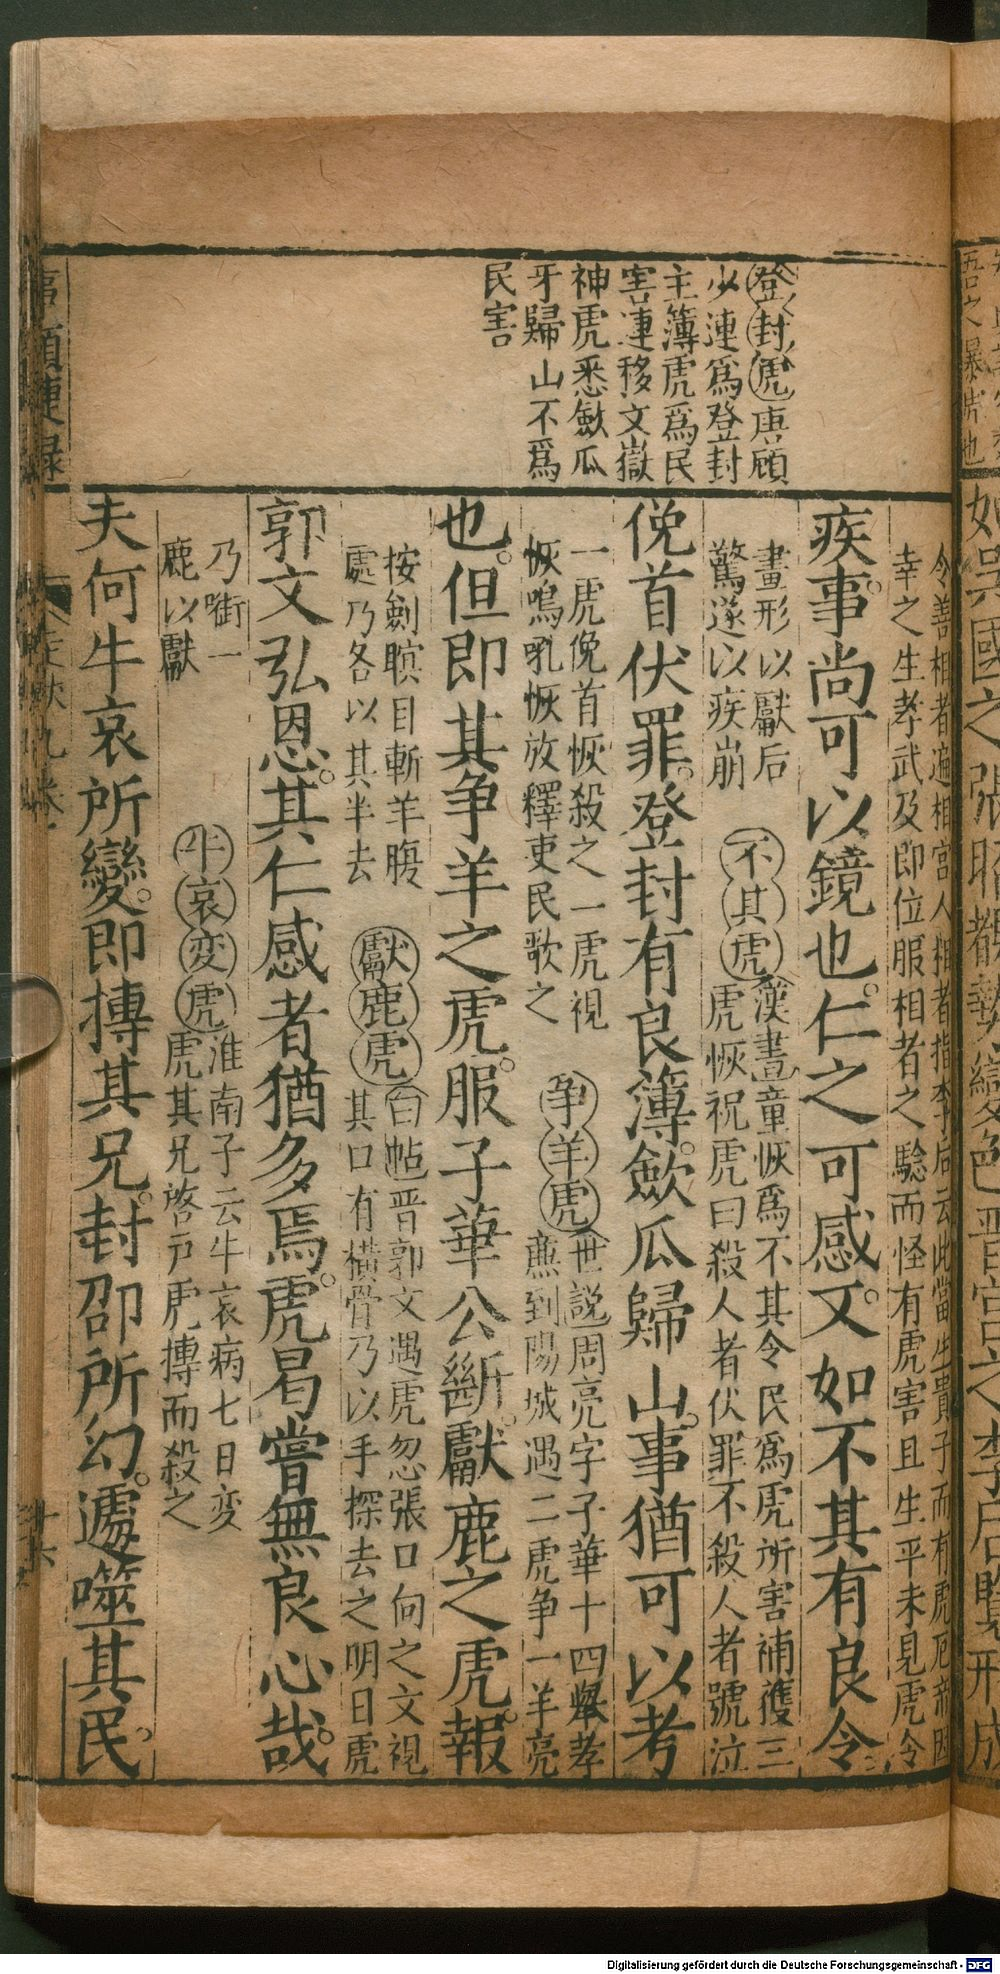 登封虎唐顧
少連爲登封
主簿虎爲民
害連移文嶽
神虎悉斂瓜
牙歸山不爲
民害
令善相者遍相宮人相者指李后云此當生貴子而有虎厄帝因
幸之生孝武及即位服相者之驗而怪有虎害且生平未見虎令
疾事尚可以鏡也仁之可感又如不其有良令
畫形以獻后
驚遂以疾崩
不其虎漢書童恢爲不其令民爲虎所害捕獲三
虎恢祝虎曰殺人者伏罪不殺人者號泣
俛首伏罪登封有良簿斂瓜歸山事猶可以考
一虎俛首恢殺之一虎視
恢鳴吼恢放釋吏民歌之
爭羊虎世説周亮字子華十四舉孝
燕到陽城遇二虎争一羊亮
也但即其争羊之虎服子華公斷獻鹿之虎報
按劍瞋目斬羊腹
處乃各以其半去
獻鹿虎白帖晋郭文遇虎忽張口向之文視
其口有橫骨乃以手探去之明日虎
郭文弘恩其仁感者猶多焉虎曷嘗無良心哉
乃啣一
鹿以獻
牛哀変虎淮南子云牛哀病七日変
虎其兄啓戸虎搏而殺之
夫何牛哀所變即搏其兄封邵所幻遽噬其民
事類捷録
走獸九卷
如吳國之張昭觀勢變色晋宮之李后覽形成
Digitalisierung gefördert durch die Deutsche Forschungsgemeinschaft - DFG